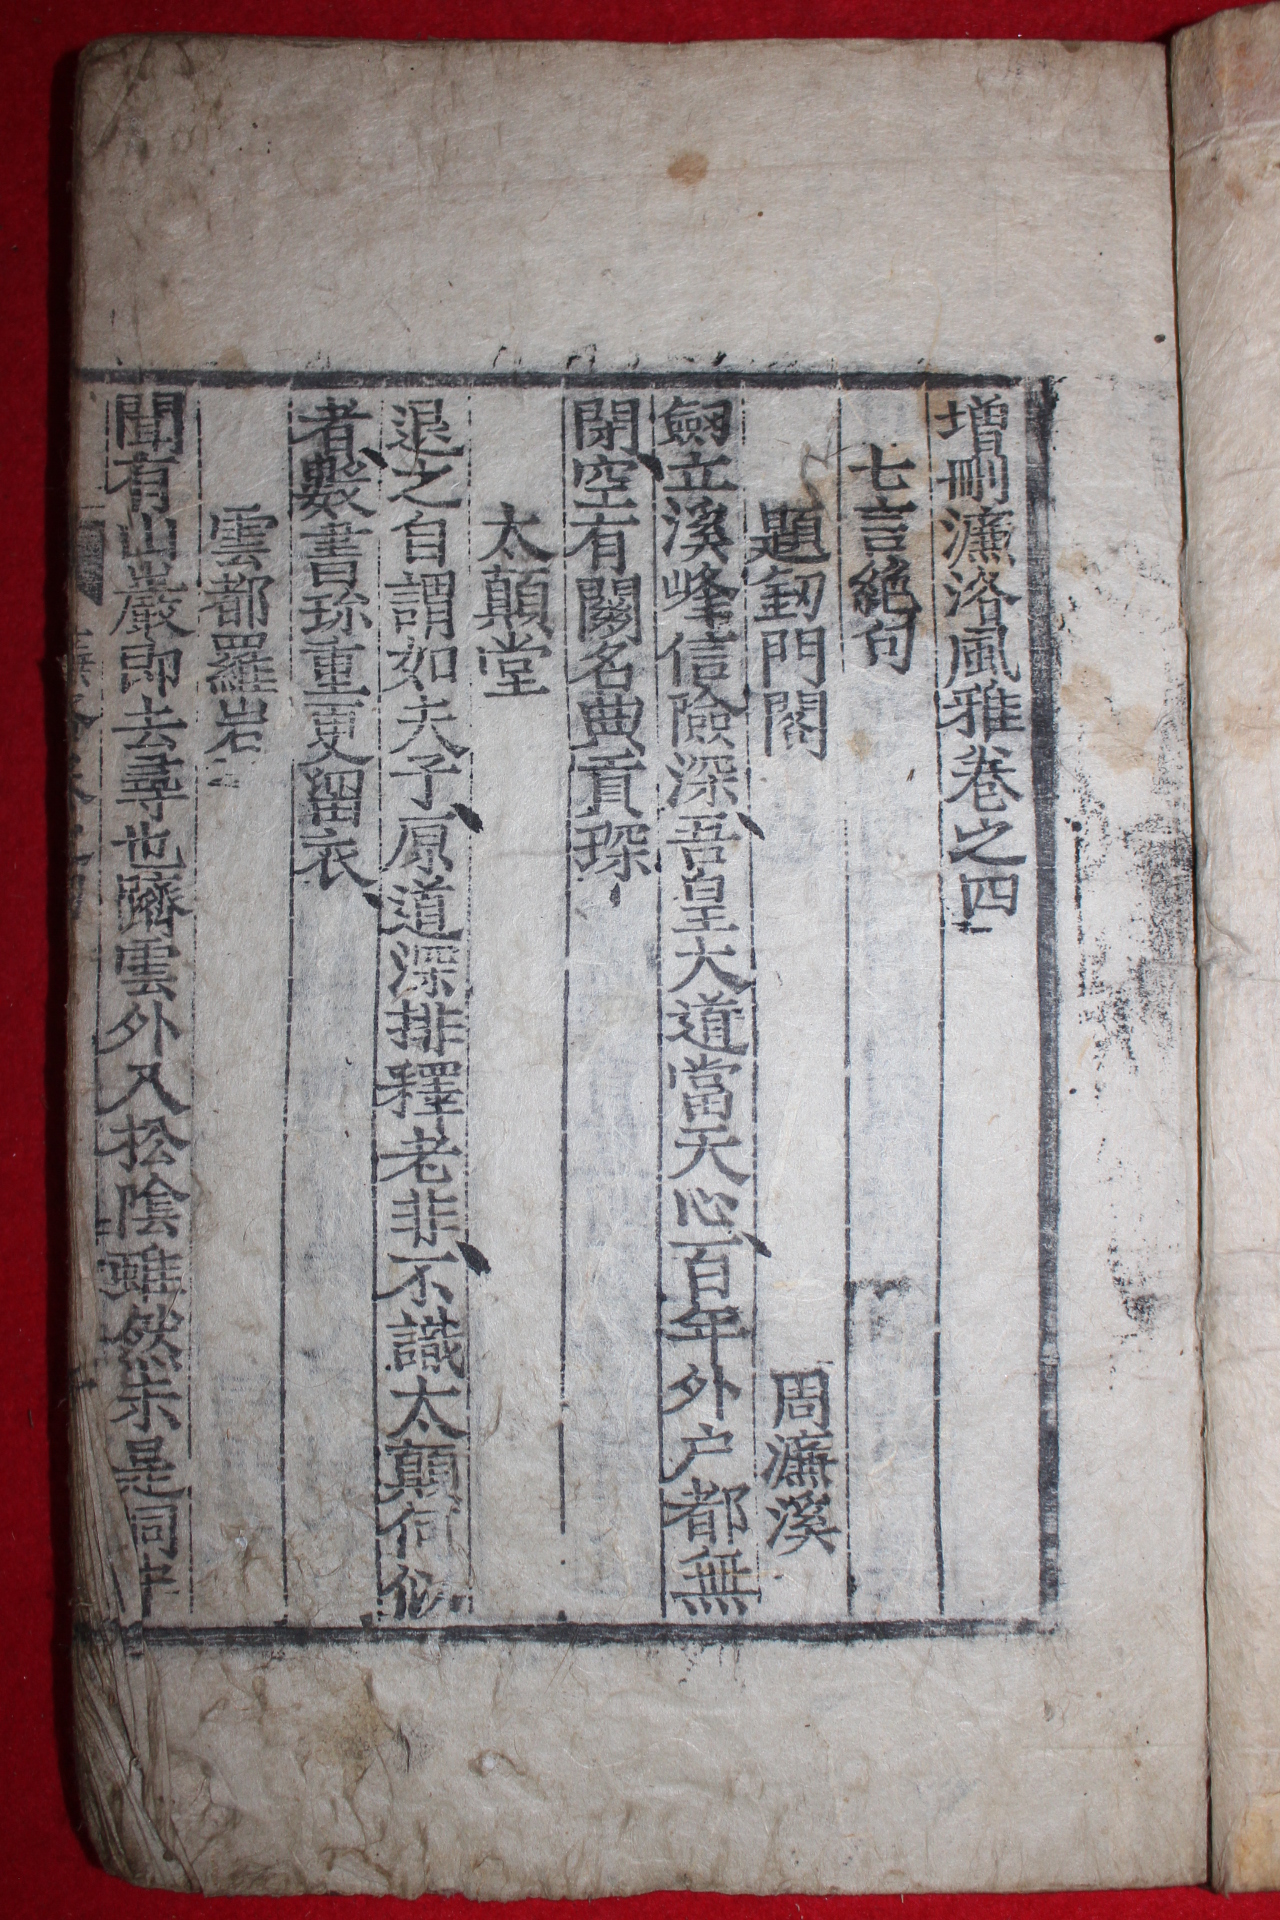 增刪濂洛風雅卷之四
七言絶句
題釰門閣 周濂溪
劔立溪峰信險深吾皇大道當天心百年外户都無
閉空有關名典貢琛
太顛堂
退之自謂如夫子原道深排釋老非不識太顛何似
者數書珎重更留衣
雲都羅岩
聞有山巖即去尋也躋雲外入松陰雖然未是洞中